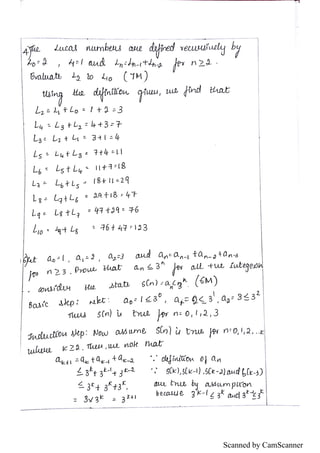 4) The Lucas numbers are defined recursively by
L₀=2 , L₁=1 and Lₙ=Lₙ₋₁+Lₙ₋₂ for n≥2.
Evaluate L₂ to L₁₀ (7M)
Using the definition given, we find that
L₂ = L₁ + L₀ = 1 + 2 = 3
L₄ = L₃ + L₂ = 4+3 = 7
L₃ = L₂ + L₁ = 3+1 = 4
L₅ = L₄ + L₃ = 7+4 = 11
L₆ = L₅ + L₄ = 11+7 = 18
L₇ = L₆ + L₅ = 18+11 = 29
L₈ = L₇ + L₆ = 29+18 = 47
L₉ = L₈ + L₇ = 47+29 = 76
L₁₀ = L₉ + L₈ = 76+47 = 123
Let a₀=1, a₁=2, a₂=3 and aₙ=aₙ₋₁+aₙ₋₂+aₙ₋₃
for n≥3. Prove that aₙ ≤ 3ⁿ for all +ve integers n
consider the state S(n) = aₙ≤3ⁿ. (6M)
Basic step: a₀=1≤3⁰, a₁=2≤3¹, a₂=3≤3²
Thus S(n) is true for n=0,1,2,3
Induction step: Now assume S(n) is true for n=0,1,2,...k
where k≥2. Then, we note that
aₖ₊₁ = aₖ + aₖ₋₁ + aₖ₋₂ ∵ definition of aₙ
≤ 3ᵏ + 3ᵏ⁻¹ + 3ᵏ⁻² ∵ S(k), S(k-1), S(k-2) and
≤ 3ᵏ + 3ᵏ + 3ᵏ. are true by assumption
= 3×3ᵏ = 3ᵏ⁺¹ because 3ᵏ⁻¹ ≤ 3ᵏ and
Scanned by CamScanner